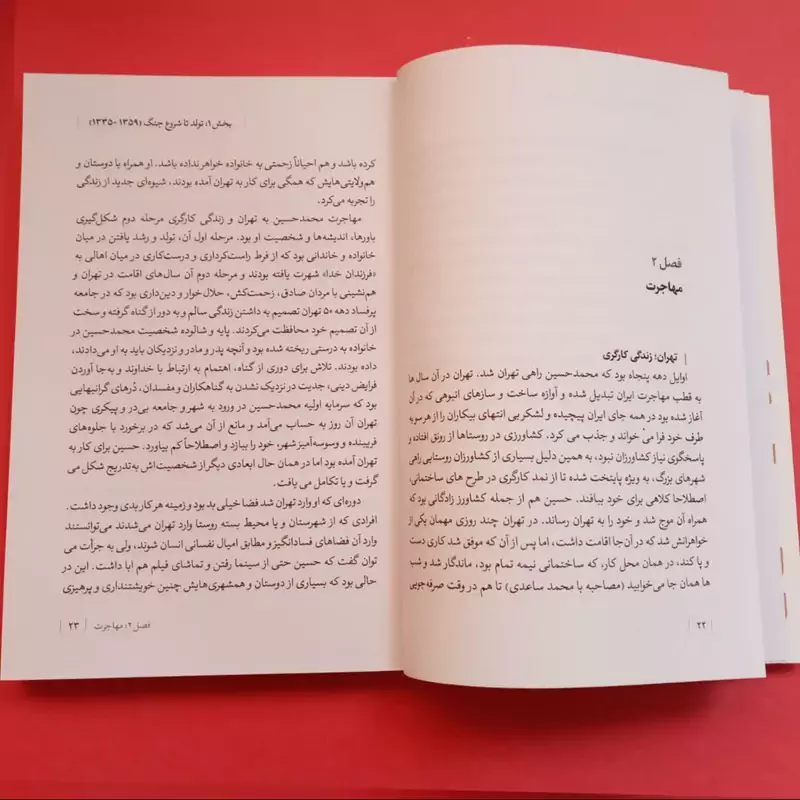 فصل ۲
مهاجرت
تهران؛ زندگی کارگری
اوایل دهه پنجاه بود که محمدحسین راهی تهران شد. تهران در آن سال ها
به قطب مهاجرت ایران تبدیل شده و آوازه ساخت و سازهای انبوهی که در آن
آغاز شده بود در همه جای ایران پیچیده و لشکر بی انتهای بیکاران را از هر سو به
طرف خود فرا می خواند و جذب می کرد. کشاورزی در روستاها از رونق افتاده و
پاسخگوی نیاز کشاورزان نبود، به همین دلیل بسیاری از کشاورزان روستایی راهی
شهرهای بزرگ، به ویژه پایتخت شده تا از نمد کارگری در طرح های ساختمانی،
اصطلاحا کلاهی برای خود ببافند. حسین هم از جمله کشاورز زادگانی بود که
همراه آن موج شد و خود را به تهران رساند. در تهران چند روزی مهمان یکی از
خواهرانش شد که در آن‌جا اقامت داشت، اما پس از آن که موفق شد کاری دست
و پا کند، در همان محل کار، که ساختمانی نیمه تمام بود، ماندگار شد و شب
ها همان جا می‌خوابید (مصاحبه با محمد ساعدی) تا هم در وقت صرفه‌جویی
۲۲
بخش ۱: تولد تا شروع جنگ (۱۳۵۹ -۱۳۳۵)
کرده باشد و هم احیاناً زحمتی به خانواده خواهر نداده باشد. او همراه با دوستان و
هم‌ولایتی‌هایش که همگی برای کار به تهران آمده بودند، شیوه‌ای جدید از زندگی
را تجربه می‌کرد.
مهاجرت محمدحسین به تهران و زندگی کارگری مرحله دوم شکل‌گیری
باورها، اندیشه‌ها و شخصیت او بود. مرحله اول آن، تولد و رشد یافتن در میان
خانواده و خاندانی بود که از فرط راست‌کرداری و درست‌کاری در میان اهالی به
«فرزندان خدا» شهرت یافته بودند و مرحله دوم آن سال‌های اقامت در تهران و
هم‌نشینی با مردان صادق، زحمت‌کش، حلال‌خوار و دین‌داری بود که در جامعه
پرفساد دهه ۵۰ تهران تصمیم به داشتن زندگی سالم و به دور از گناه گرفته و سخت
از آن تصمیم خود محافظت می‌کردند. پایه و شالوده شخصیت محمدحسین در
خانواده به درستی ریخته شده بود و آنچه پدر و مادر و نزدیکان باید به او می‌دادند،
داده بودند. تلاش برای دوری از گناه، اهتمام به ارتباط با خداوند و به‌جا آوردن
فرایض دینی، جدیت در نزدیک نشدن به گناهکاران و مفسدان، دُرهای گرانبهایی
بود که سرمایه اولیه محمدحسین در ورود به شهر و جامعه بی‌در و پیکری چون
تهران آن روز به حساب می‌آمد و مانع از آن می‌شد که در برخورد با جلوه‌های
فریبنده و وسوسه‌آمیز شهر، خود را ببازد و اصطلاحاً کم بیاورد. حسین برای کار به
تهران آمده بود اما در همان حال ابعادی دیگر از شخصیت‌اش به‌تدریج شکل می
گرفت و یا تکامل می یافت.
دوره‌ای که او وارد تهران شد فضا خیلی بد بود و زمینه هر کار بدی وجود داشت.
افرادی که از شهرستان و یا محیط بسته روستا وارد تهران می‌شدند می‌توانستند
وارد آن فضاهای فسادانگیز و مطابق امیال نفسانی انسان شوند، ولی به جرأت می
توان گفت که حسین حتی از سینما رفتن و تماشای فیلم هم ابا داشت. این در
حالی بود که بسیاری از دوستان و همشهری‌هایش چنین خویشتنداری و پرهیزی
فصل ۲: مهاجرت | ۲۳